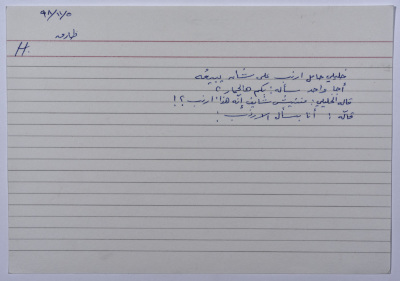 ٩٨/١١/٥
H.
خليلي حامل ارنب على شان يبيعه
أجا واحد سأله: بكم هالحمار؟
قاله الخليلي: منتيش شايف إنه هذا ارنب؟!
قاله: أنا بسأل الارنب!